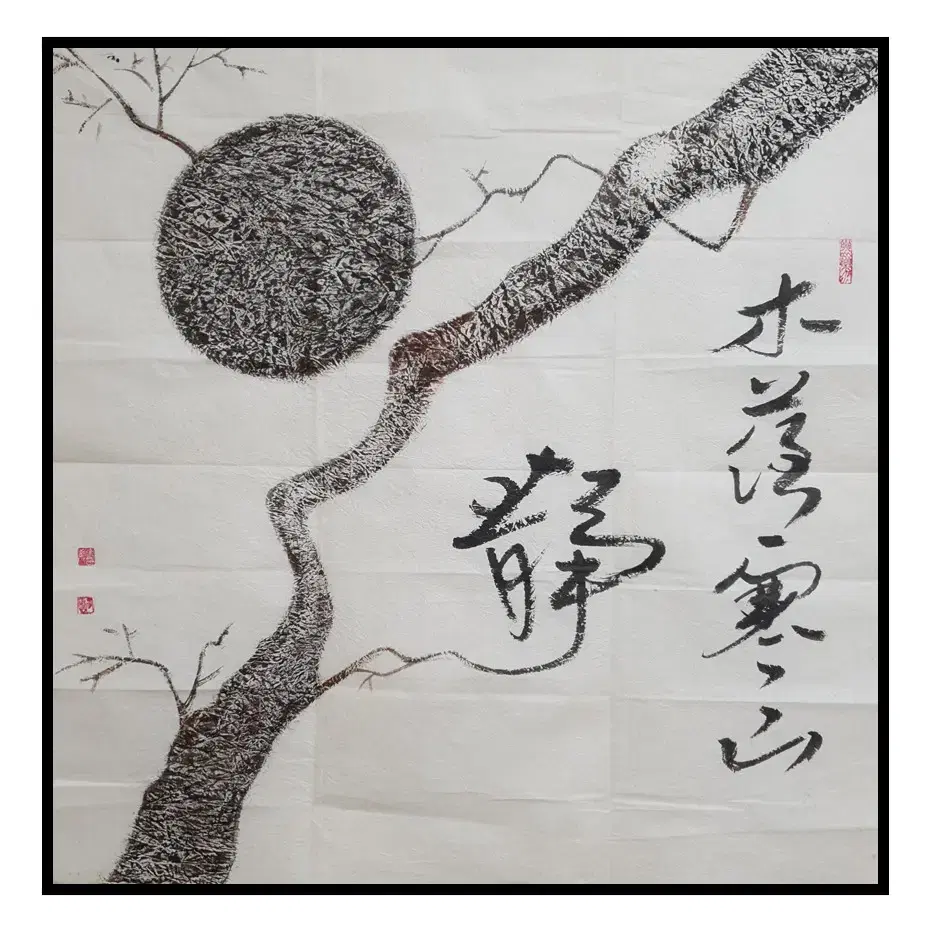 木落寒山
靜